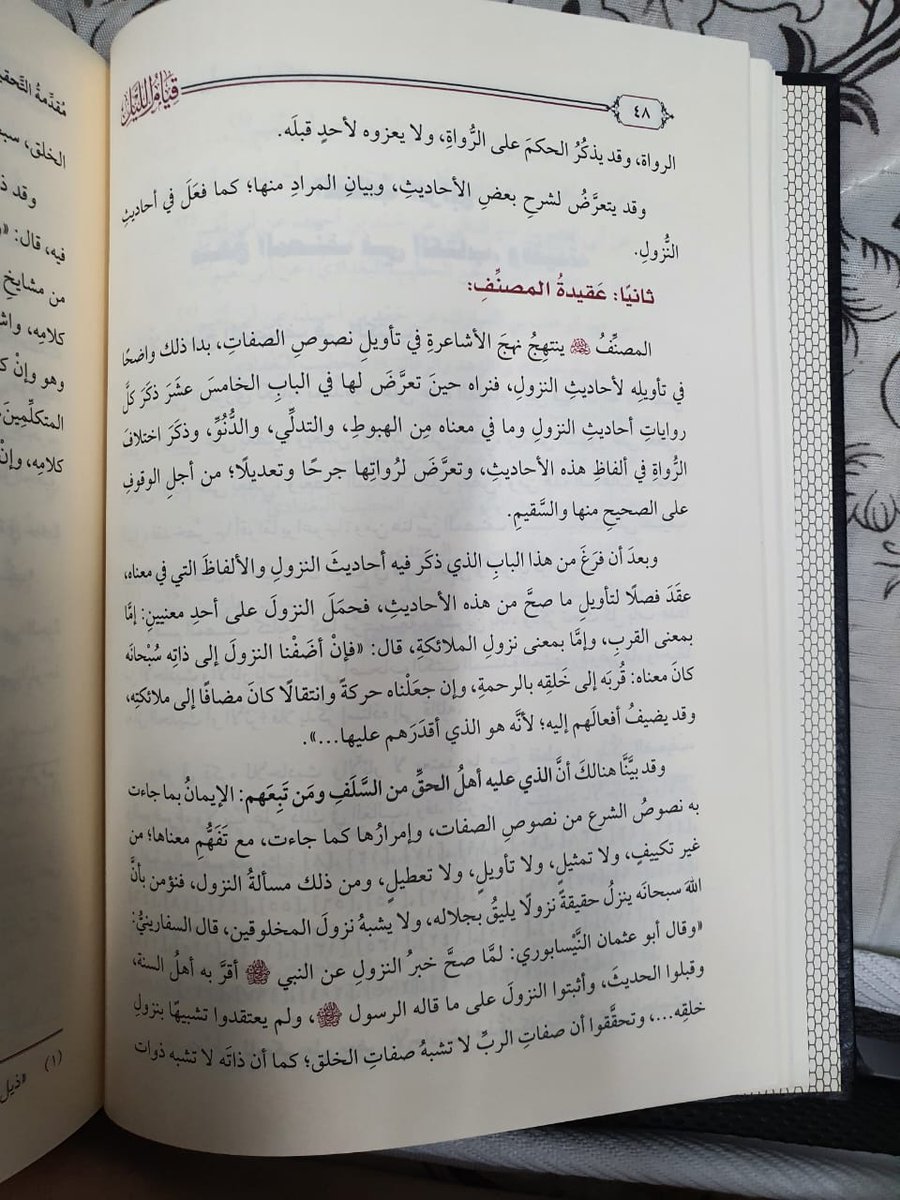 ٤٨
قيام الليل
الرواة، وقد يذكُرُ الحكمَ على الرُّواةِ، ولا يعزوه لأحدٍ قبلَه.
وقد يتعرَّضُ لشرحِ بعضِ الأحاديثِ، وبيانِ المرادِ منها؛ كما فعَلَ في أحاديثِ
النُّزولِ.
ثانيًا: عَقيدةُ المصنِّفِ:
المصنِّفُ ينتهِجُ نهجَ الأشاعرةِ في تأويلِ نصوصِ الصفاتِ، بدا ذلك واضحًا
في تأويلِه لأحاديثِ النزولِ، فنراه حينَ تعرَّضَ لها في البابِ الخامسَ عشَرَ ذكَرَ كلَّ
رواياتِ أحاديثِ النزولِ وما في معناه مِن الهبوطِ، والتدلِّي، والدُّنُوِّ، وذكَرَ اختلافَ
الرُّواةِ في ألفاظِ هذه الأحاديثِ، وتعرَّضَ لرُواتِها جرحًا وتعديلًا؛ من أجلِ الوقوفِ
على الصحيحِ منها والسَّقيمِ.
وبعدَ أن فرَغَ من هذا البابِ الذي ذكَرَ فيه أحاديثَ النزولِ والألفاظَ التي في معناه،
عقَدَ فصلًا لتأويلِ ما صحَّ من هذه الأحاديثِ، فحمَلَ النزولَ على أحدِ معنيينِ: إمَّا
بمعنى القربِ، وإمَّا بمعنى نزولِ الملائكةِ، قال: «فإنْ أضَفْنا النزولَ إلى ذاتِه سُبْحانَه
كانَ معناه: قُربَه إلى خَلقِه بالرحمةِ، وإن جعَلْناه حركةً وانتقالًا كانَ مضافًا إلى ملائكتِه،
وقد يضيفُ أفعالَهم إليه؛ لأنَّه هو الذي أقدَرَهم عليها...».
وقد بيَّنَّا هنالكَ أنَّ الذي عليه أهلُ الحقِّ من السَّلَفِ ومَن تَبِعَهم: الإيمانُ بما جاءت
به نصوصُ الشرعِ من نصوصِ الصفات، وإمرارُها كما جاءت، مع تَفَهُّمِ معناها؛ من
غير تكييفٍ، ولا تمثيلٍ، ولا تأويلٍ، ولا تعطيلٍ، ومن ذلك مسألةُ النزول، فنؤمن بأنَّ
اللهَ سبحانَه ينزلُ حقيقةً نزولًا يليقُ بجلاله، ولا يشبهُ نزولَ المخلوقين، قال السفارينيُّ:
«وقال أبو عثمان النَّيْسابوري: لمَّا صحَّ خبرُ النزولِ عن النبي ﷺ أقرَّ به أهلُ السنة،
وقبلوا الحديثَ، وأثبتوا النزولَ على ما قاله الرسول ﷺ، ولم يعتقدوا تشبيهًا بنزولِ
خلقِه...، وتحقَّقوا أن صفاتِ الربِّ لا تشبهُ صفاتِ الخلق؛ كما أن ذاتَه لا تشبه ذوات
مُقدِّمةُ التَّحقي
الخلق، سبـ
وقد ذ
فيه، قال: «و
من مشايخِ
كلامِه، واش
وهو وإنْ ك
المتكلِّمينَ،
كلامِه، وإنْ
(١) «ذيل